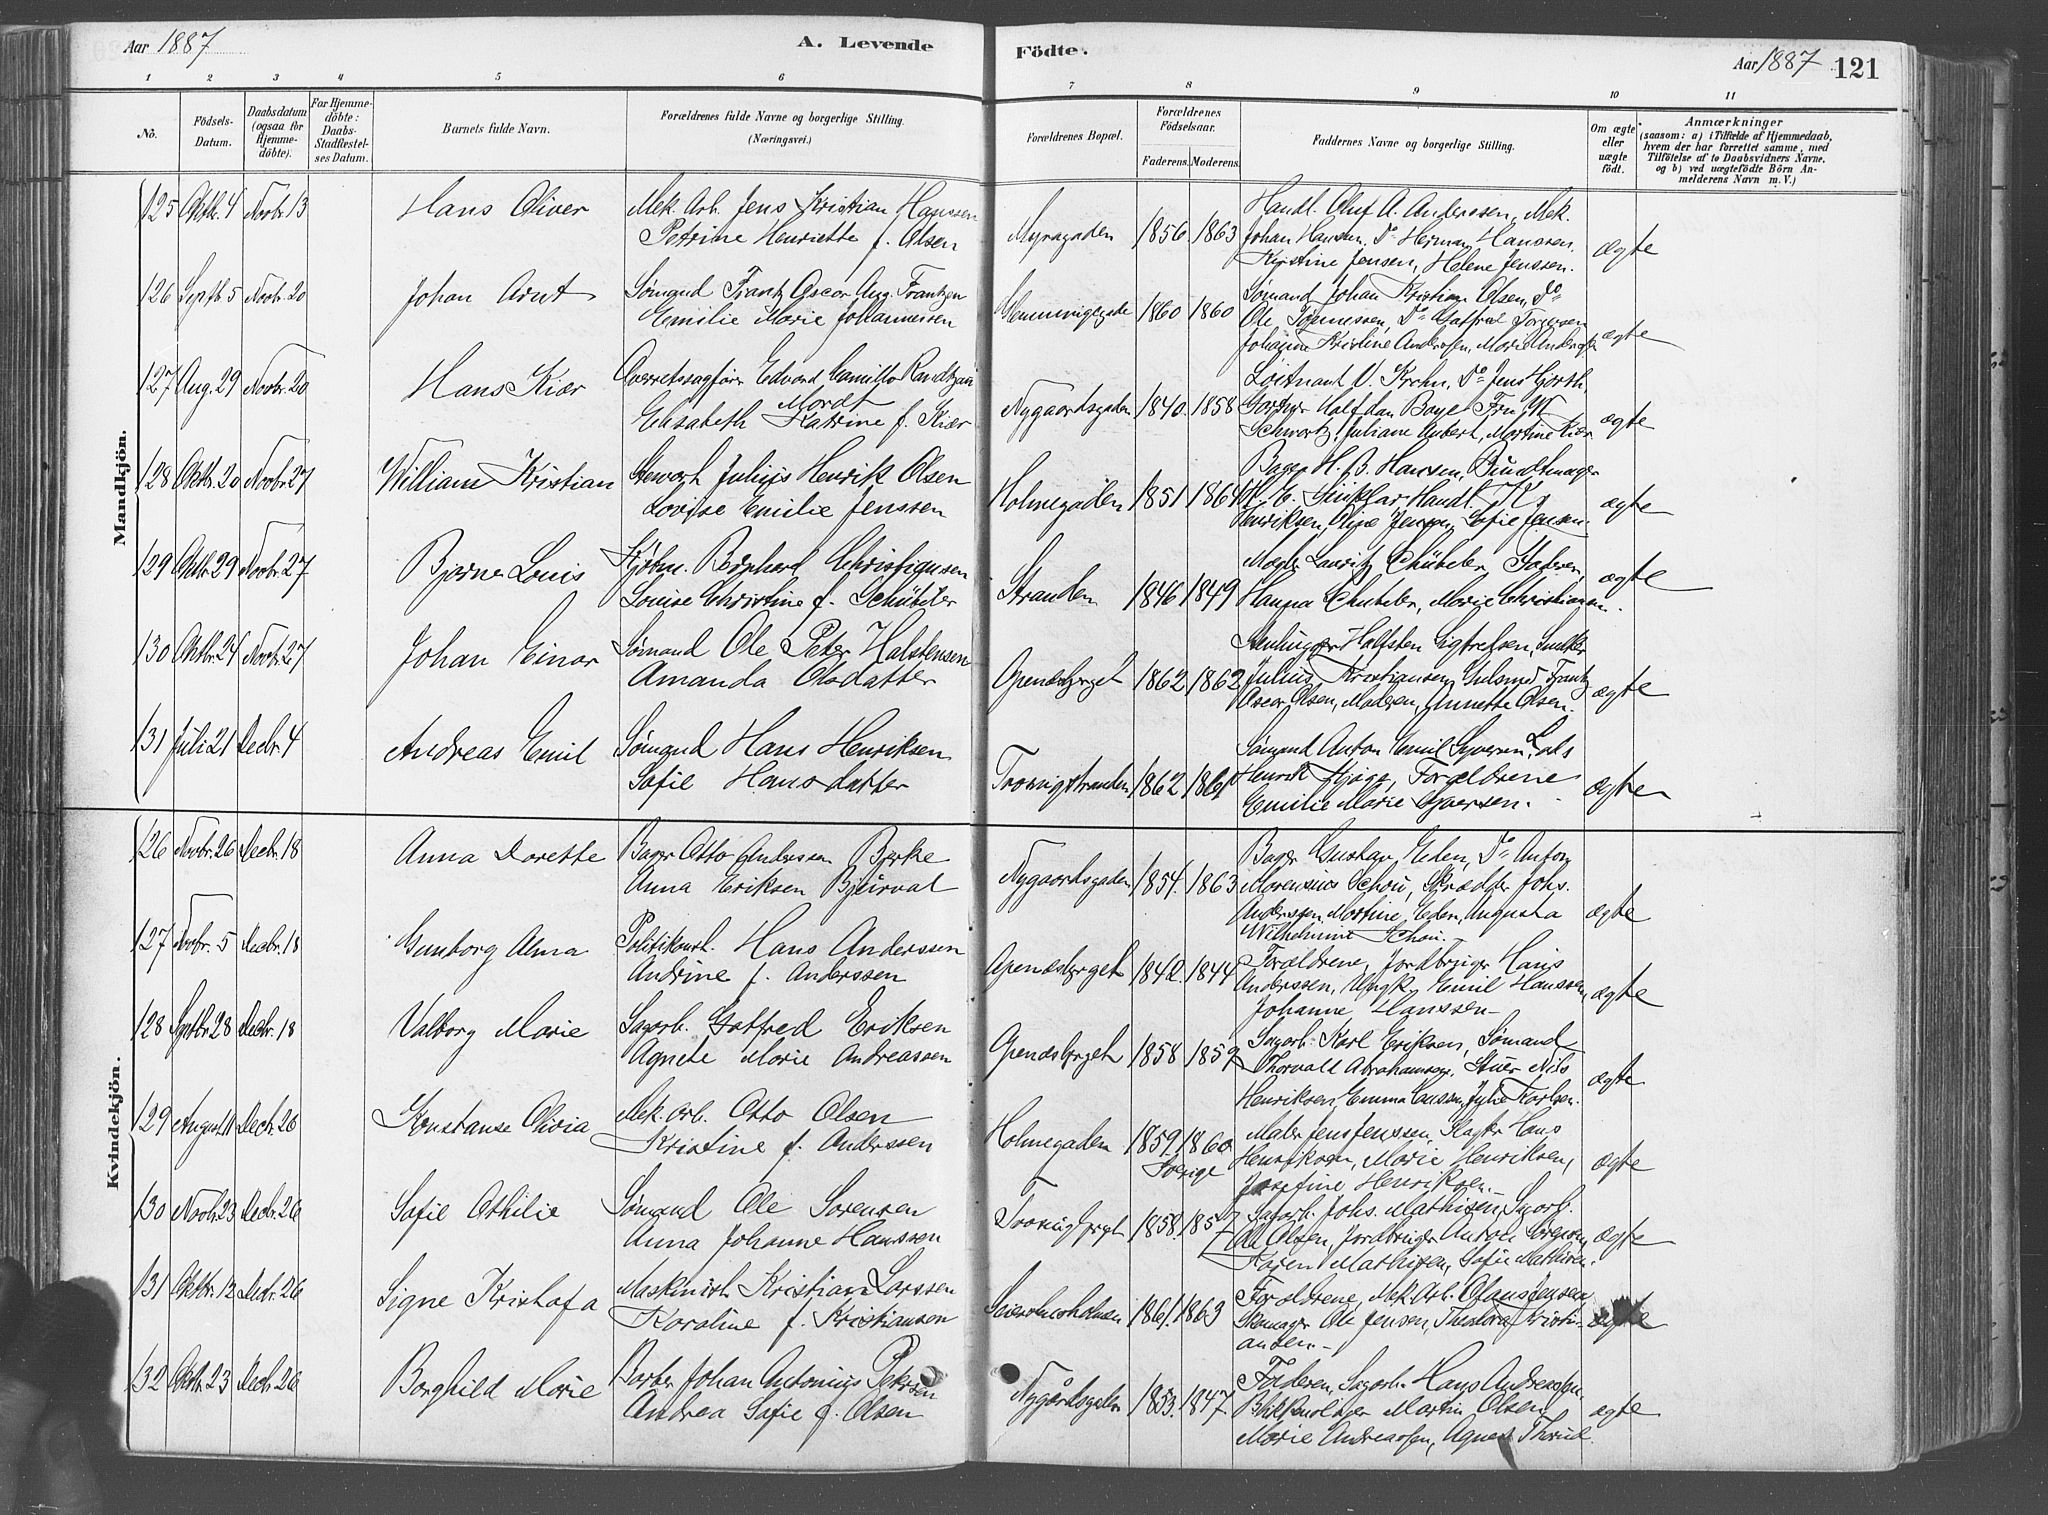 Aar 1887
A. Levende
Födte.
Aar 1887 121
1 2 3 4 5 6 7 8 9 10 11
No.
Födsels-
Datum.
Daabsdatum
(ogsaa for
Hjemme-
döbte).
For Hjemme-
döbte:
Daabs-
Stadfæstel-
ses Datum.
Barnets fulde Navn.
Forældrenes fulde Navne og borgerlige Stilling.
(Næringsvei.)
Forældrenes Bopæl.
Forældrenes
Födselsaar.
Faderens. Moderens.
Faddernes Navne og borgerlige Stilling.
Om ægte
eller
uægte
födt.
Anmærkninger
(saasom: a) i Tilfælde af Hjemmedaab,
hvem der har forrettet samme, med
Tilföielse af to Daabsvidners Navne,
og b) ved uægtefödte Börn An-
melderens Navn m. V.)
Mandkjön.
125 Oktbr. 4 Novbr. 13 Hans Oliver Mek. Arb. Jens Kristian Hanssen
Petrine Henriette f. Olsen
Myragaden 1856. 1863
Handl. Oluf A. Anderssen, Mek.
Johan Hansen, Do Herman Hanssen,
Kristine Jensen, Helene Jenssen.
ægte
126 Septb. 5 Novbr. 20 Johan Arnt Sømand Frantz Oscar Aug. Frantzen
Emilie Marie Johannessen
1860 1860
Sømand Johan Kristian Olsen, Do
Ole Do
Johanne Kristine Anderssen, Marie
ægte
127 Aug. 29 Novbr. 20 Hans Kiær Overretssagfører Edvard Camillo
Mordt
Elisabeth Katrine f. Kiær
Nygaardsgaden 1840. 1858
Løitnant V. Do Jens Hjorth,
Halfdan Boye Fru
Schwartz, Juliane Aubert, Martine Kiær
ægte
128 Oktbr. 20 Novbr. 27 William Kristian Stewart Julius Henrik Olsen
Lovise Emilie Jenssen
Holmegaden 1851 1864
Bager H. B. Hansen, Bundtmager
Handl. K.
Henriksen, Oline Jensen, Sofie Jensen.
ægte
129 Oktbr. 29 Novbr. 27 Bjarne Louis Kjøbm. Bernhard Christiansen
Louise Christine f. Schübeler
Stranden 1846 1849
Mægler Lauritz Schübeler, Faderen,
Hanna Schübeler, Marie Christiansen.
ægte
130 Oktbr. 24 Novbr. 27 Johan Einar Sømand Ole Peter Halstensen
Amanda Olsdatter
Apenæsberget 1862 1862
Halsten Sigfredsen, Snekker
Julius Kristiansen, Gulsmed Frantz
Oscar Olsen, Moderen, Annette Olsen.
ægte
131 Juli 21 Decbr. 4 Andreas Emil Sømand Hans Henriksen
Sofie Hansdatter
Trosvigstranden 1862 1861
Sømand Anton Emil Syversen, Lods
Henrik Forældrene
Emilie Marie Syversen.
ægte
Kvindekjön.
126 Novbr. 26 Decbr. 18 Anna Dorette Bager Otto Anderssen Bjerke
Anna Eriksen Bjurval
Nygaardsgaden 1854. 1863
Bager Gustav Eden, Do Anton
Schou, Skrædder Johs.
Anderssen, Martine Eden, Augusta
Wilhelmine Schou.
ægte
127 Novbr. 5 Decbr. 18 Gunborg Alma Politikonst. Hans Anderssen
Andrine f. Anderssen
Apenæsberget 1842. 1844
Forældrene, Jordbruger Hans
Anderssen, Ungk. Emil Hanssen,
Johanne Hanssen.
ægte
128 Septbr. 28 Decbr. 18 Valborg Marie Sagarb. Gotfred Eriksen
Agnete Marie Andreassen
Apenæsberget 1858 1859
Sagarb. Karl Eriksen, Sømand
Thorvald Abrahamsen, Stuer Nils
Henriksen, Emma Julie Karlsen.
ægte
129 August 11 Decbr. 26 Konstanse Olivia Mek. Arb. Otto Olsen
Kristine f. Anderssen
Holmegaden 1859. 1860
Sverige
Maler Jens Jenssen, Slagter Hans
Henriksen, Marie Henriksen,
Josefine Henriksen.
ægte
130 Novbr. 23 Decbr. 26 Sofie Othilie Sømand Ole Sørensen
Anna Johanne Hanssen
Trosvigberget 1858. 1857
Sagarb. Johs. Mathisen, Sagarb.
Olsen, Jordbruger Anton Sørensen,
Karen Mathisen, Sofie Mathisen.
ægte
131 Oktbr. 12 Decbr. 26 Signe Kristofa Maskinist Kristian Larssen
Karoline f. Kristiansen
1861. 1863
Forældrene, Mek. Arb. Olaus Jensen,
Skomager Ole Jensen, Theodora Kristi-
ansen.
ægte
132 Oktbr. 23 Decbr. 26 Borghild Marie Barber Johan Antonius Petersen
Andrea Sofie f. Olsen
Nygårdsgaden 1853. 1847.
Faderen, Sagarb. Hans Andreassen,
Blikkenslager Martin Olsen,
Marie Andreassen, Agnes
ægte